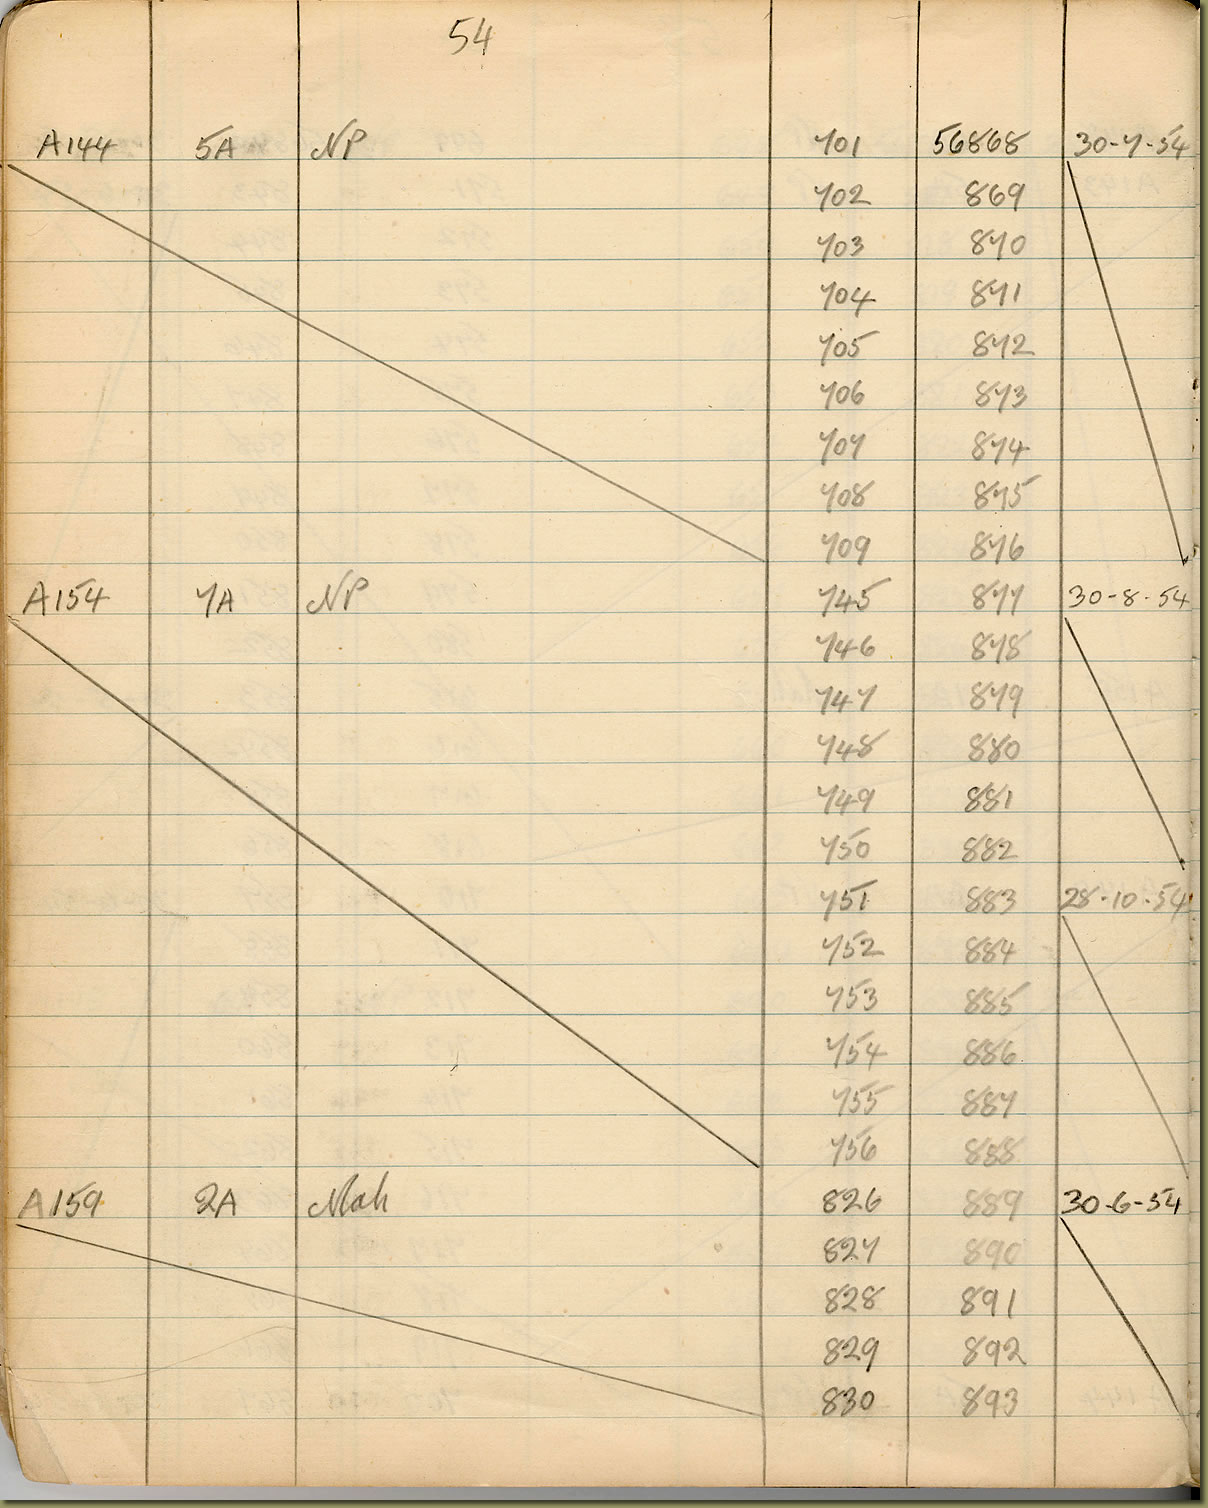 54
A144 5A NP 701 56868 30-7-54
702 869
703 870
704 871
705 872
706 873
707 874
708 875
709 876
A154 7A NP 745 877 30-8-54
746 878
747 879
748 880
749 881
750 882
751 883 28-10-54
752 884
753 885
754 886
755 887
756 888
A159 2A Mah 826 889 30-6-54
827 890
828 891
829 892
830 893